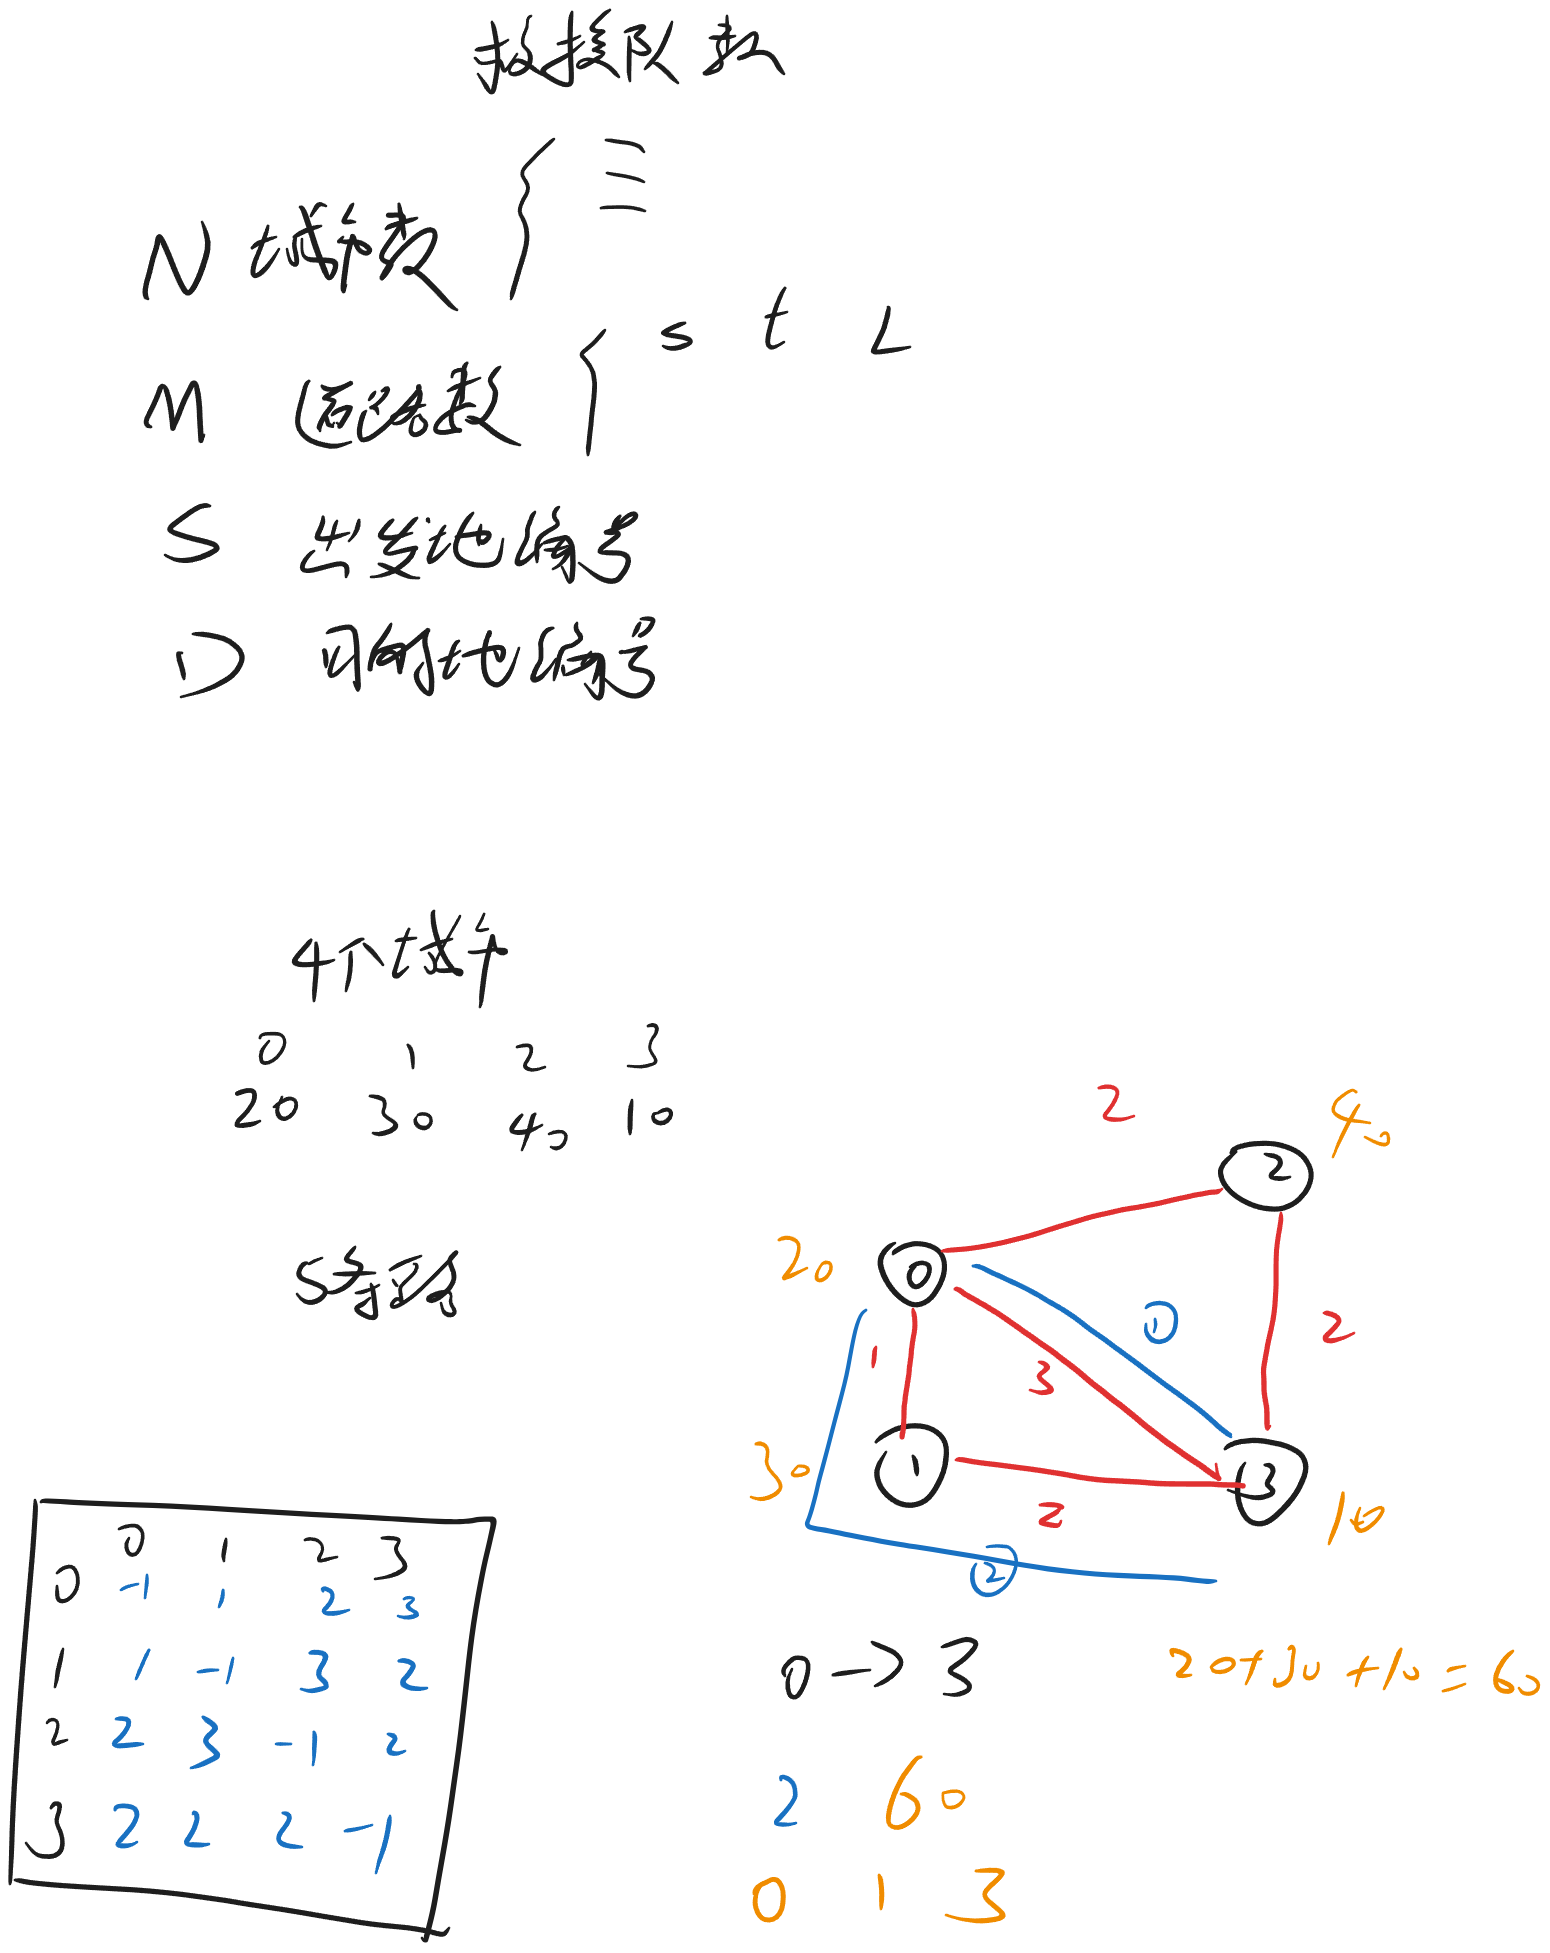 救援队数
N 城市数
s t L
M 道路数
S 出发地编号
D 目的地编号
4个城市
0 1 2 3
20 30 40 10
5条路
2 40
2
20 0
① 2
1 3
30 1 3
2 10
②
0 1 2 3
0 -1 1 2 3
1 1 -1 3 2
2 2 3 -1 2
3 2 2 2 -1
0 → 3 20+30+10=60
2 60
0 1 3